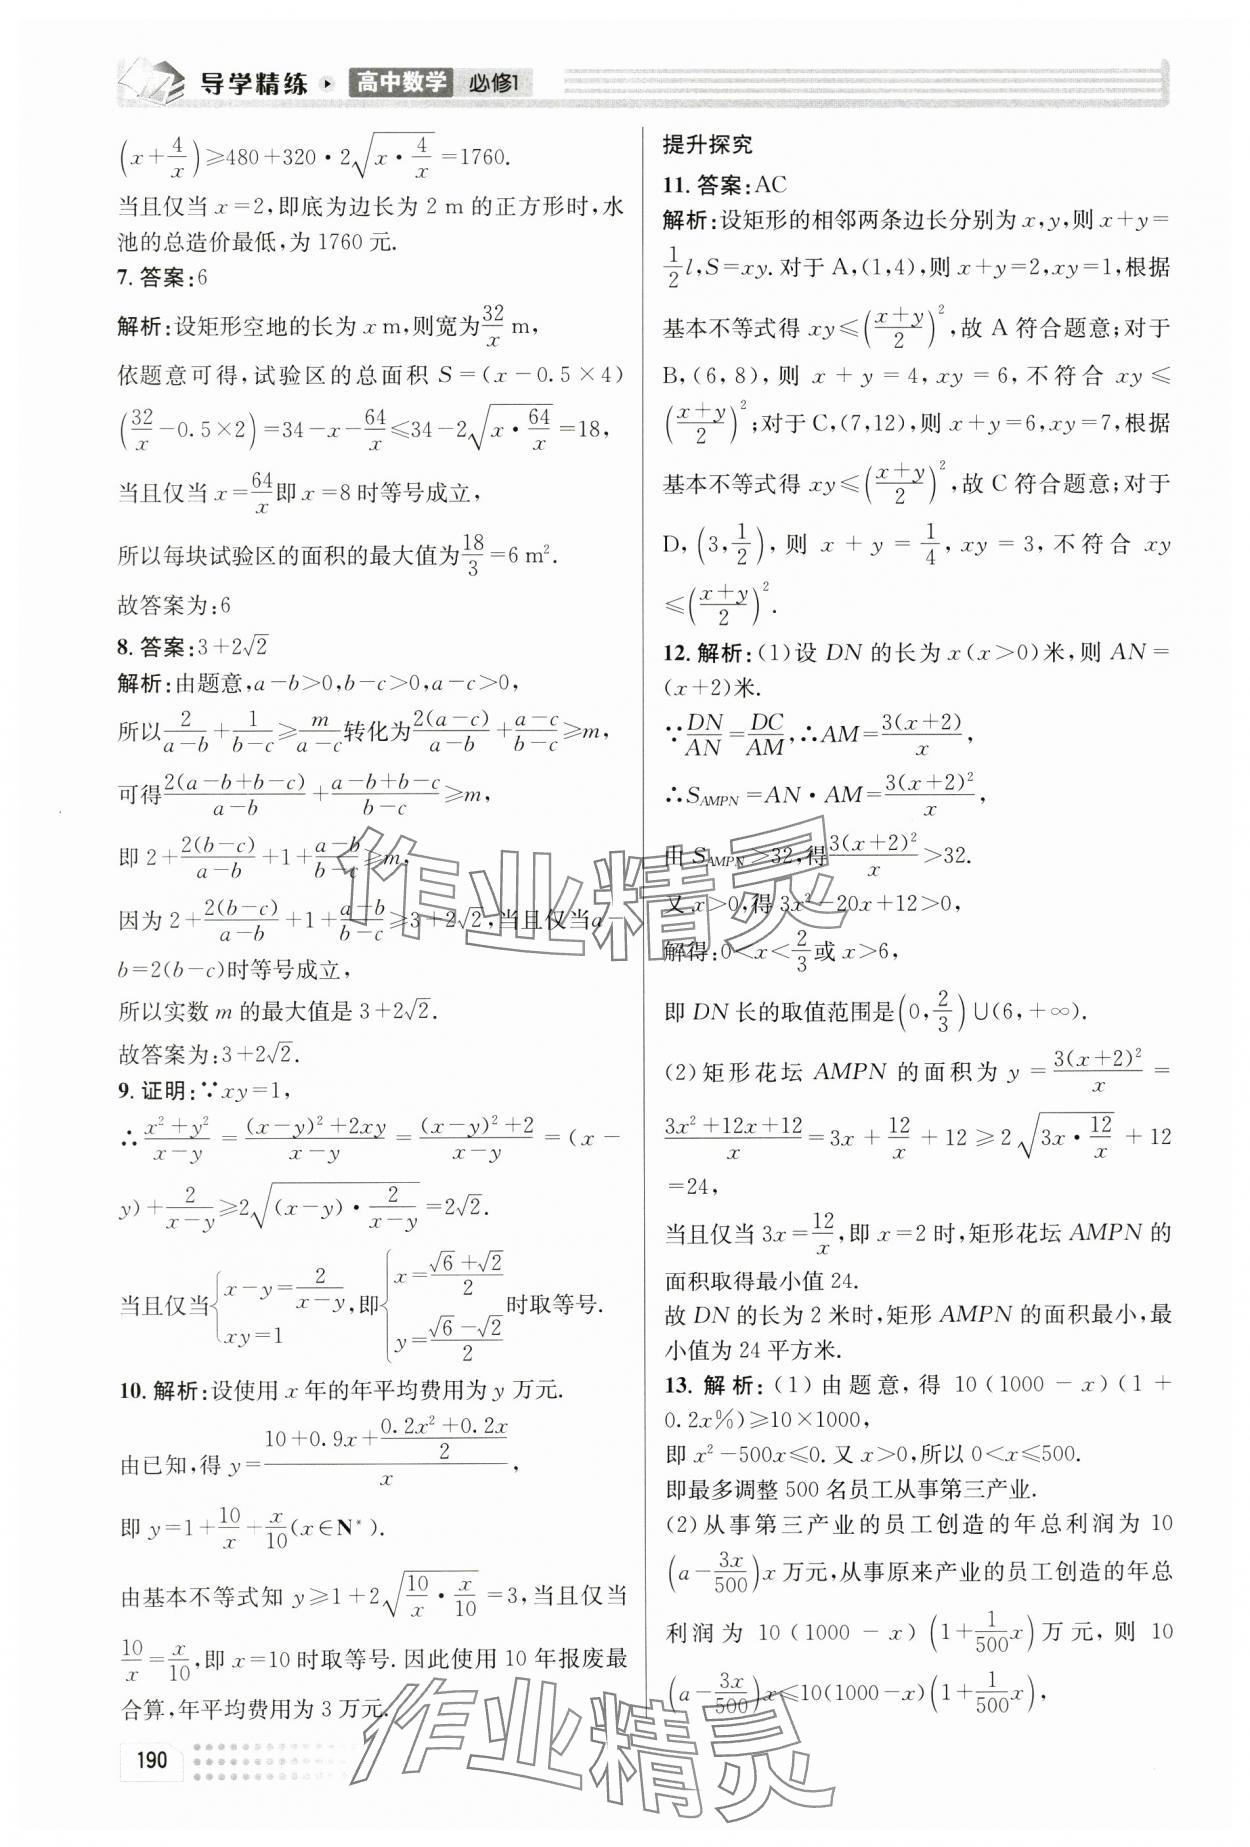 导学精练 高中数学 必修1
(x+4/x)≥480+320·2√(x·4/x)=1760.
当且仅当 x=2,即底为边长为 2 m 的正方形时,水
池的总造价最低,为 1760 元.
7. 答案:6
解析:设矩形空地的长为 x m,则宽为32/x m,
依题意可得,试验区的总面积 S=(x-0.5×4)
(32/x-0.5×2)=34-x-64/x≤34-2√(x·64/x)=18,
当且仅当 x=64/x即 x=8 时等号成立,
所以每块试验区的面积的最大值为18/3=6 m².
故答案为:6
8. 答案:3+2√2
解析:由题意,a-b>0,b-c>0,a-c>0,
所以2/(a-b)+1/(b-c)≥m/(a-c)转化为2(a-c)/(a-b)+(a-c)/(b-c)≥m,
可得2(a-b+b-c)/(a-b)+(a-b+b-c)/(b-c)≥m,
即 2+2(b-c)/(a-b)+1+(a-b)/(b-c)≥m,
因为 2+2(b-c)/(a-b)+1+(a-b)/(b-c)≥3+2√2,当且仅当a
b=2(b-c)时等号成立,
所以实数 m 的最大值是 3+2√2.
故答案为:3+2√2.
9. 证明:∵xy=1,
∴(x²+y²)/(x-y)=((x-y)²+2xy)/(x-y)=((x-y)²+2)/(x-y)=(x-
y)+2/(x-y)≥2√((x-y)·2/(x-y))=2√2.
当且仅当{x-y=2/(x-y) xy=1,即{x=(√6+√2)/2 y=(√6-√2)/2时取等号.
10. 解析:设使用 x 年的年平均费用为 y 万元.
由已知,得 y=(10+0.9x+(0.2x²+0.2x)/2)/x,
即 y=1+10/x+x/10(x∈N*).
由基本不等式知 y≥1+2√(10/x·x/10)=3,当且仅当
10/x=x/10,即 x=10 时取等号.因此使用 10 年报废最
合算,年平均费用为 3 万元.
190
提升探究
11. 答案:AC
解析:设矩形的相邻两条边长分别为 x,y,则 x+y=
1/2 l,S=xy.对于 A,(1,4),则 x+y=2,xy=1,根据
基本不等式得 xy≤((x+y)/2)²,故 A 符合题意;对于
B,(6,8),则 x+y=4,xy=6,不符合 xy≤
((x+y)/2)²;对于 C,(7,12),则 x+y=6,xy=7,根据
基本不等式得 xy≤((x+y)/2)²,故 C 符合题意;对于
D,(3,1/2),则 x+y=1/4,xy=3,不符合 xy
≤((x+y)/2)².
12. 解析:(1)设 DN 的长为 x(x>0)米,则 AN=
(x+2)米.
∵DN/AN=DC/AM,∴AM=3(x+2)/x,
∴S_AMPN=AN·AM=3(x+2)²/x,
由 S_AMPN>32,得3(x+2)²/x>32.
又 x>0,得 3x²-20x+12>0,
解得:0<x<2/3或 x>6,
即 DN 长的取值范围是(0,2/3)∪(6,+∞).
(2)矩形花坛 AMPN 的面积为 y=3(x+2)²/x=
(3x²+12x+12)/x=3x+12/x+12≥2√(3x·12/x)+12
=24,
当且仅当 3x=12/x,即 x=2 时,矩形花坛 AMPN 的
面积取得最小值 24.
故 DN 的长为 2 米时,矩形 AMPN 的面积最小,最
小值为 24 平方米.
13. 解析:(1)由题意,得 10(1000-x)(1+
0.2x%)≥10×1000,
即 x²-500x≤0.又 x>0,所以 0<x≤500.
即最多调整 500 名员工从事第三产业.
(2)从事第三产业的员工创造的年总利润为 10
(a-3x/500)x 万元,从事原来产业的员工创造的年总
利润为 10(1000-x)(1+1/500 x)万元,则 10
(a-3x/500)x≤10(1000-x)(1+1/500 x),
作业精灵
作业精灵